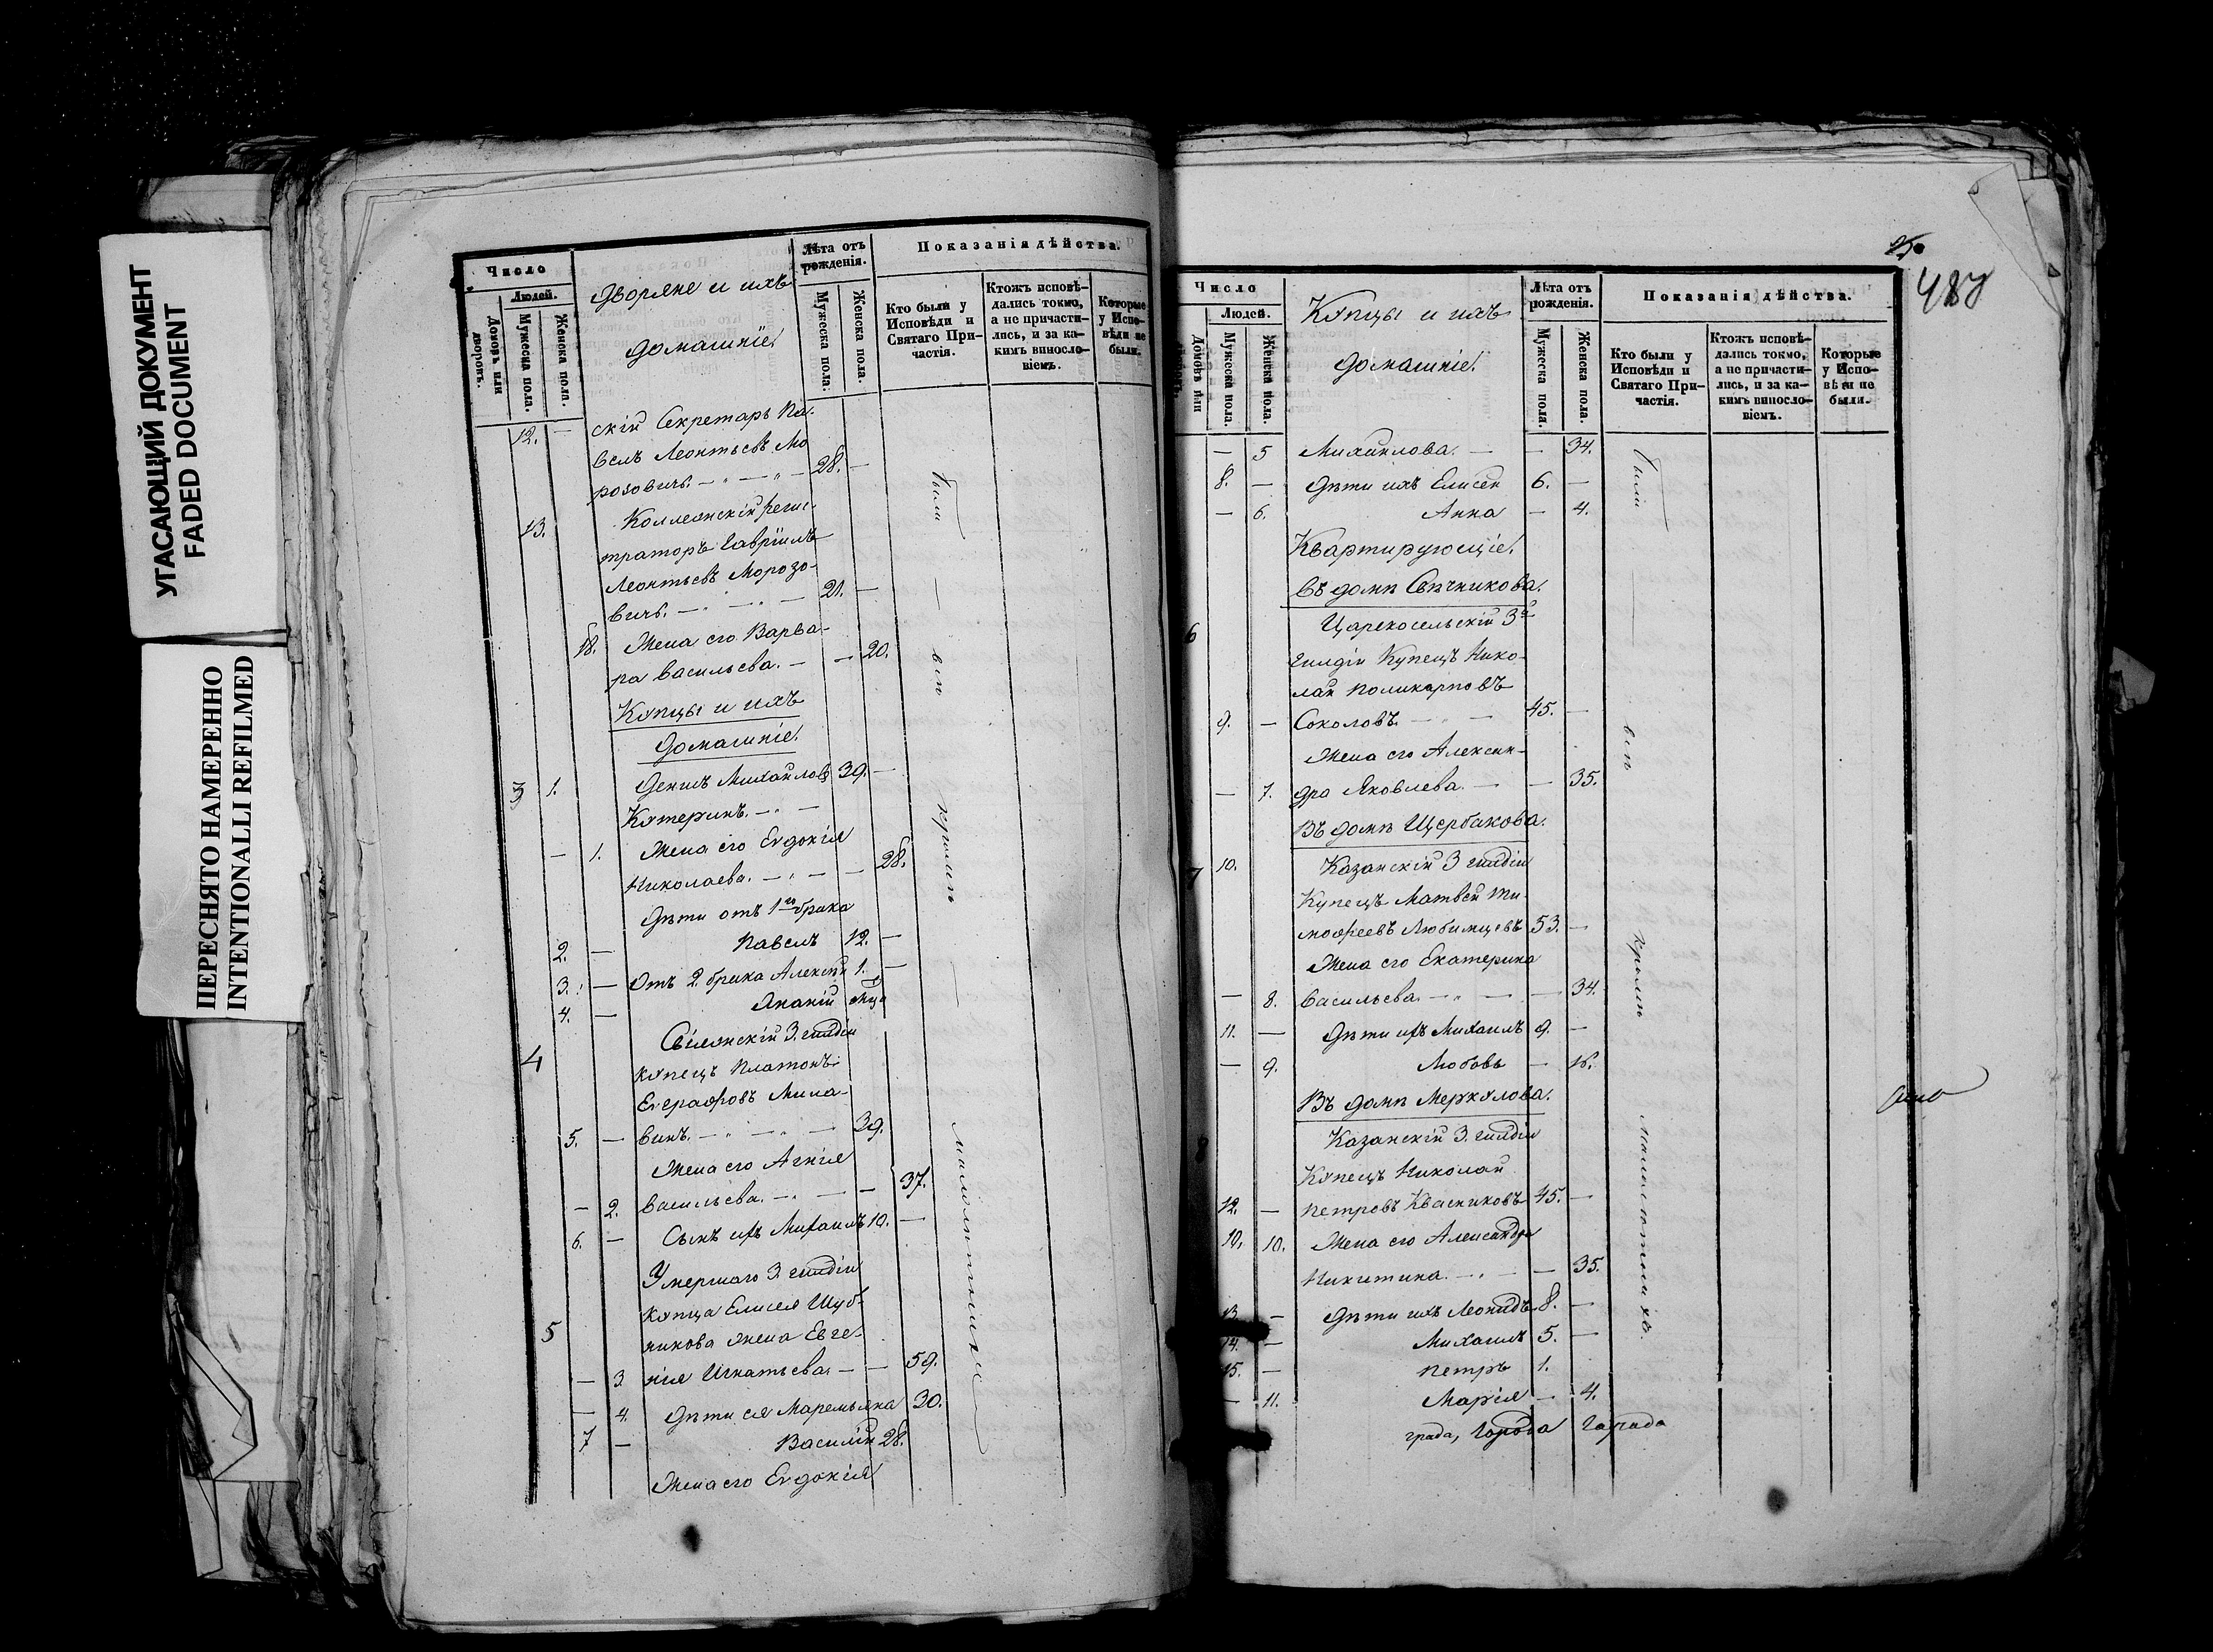 УГАСАЮЩИЙ ДОКУМЕНТ
FADED DOCUMENT
ПЕРЕСНЯТО НАМЕРЕННО
INTENTIONALLI REFILMED
Число
Людей.
Домовъ или дворовъ.
Мужеска пола.
Женска пола.
Дворяне и ихъ
домашніе.
Лѣта отъ рожденія.
Мужеска пола.
Женска пола.
Показанія дѣйства.
Кто были у Исповѣди и Святаго Причастія.
Ктожъ исповѣдались токмо, а не причастились, и за какимъ винословіемъ.
Которые у Исповѣди не были.
12. — скій Секретарь Па-
велъ Леонтьевъ Мо
розовичь. — 28. —
13. Коллежскій Регис-
траторъ Гавріилъ
Леонтьевъ Морозо-
вичь. — 21. —
18. Жена его Варва-
ра Васильева. — — 20.
Купцы и ихъ
домашніе.
3 1. Денисъ Михайловъ 39. —
Кутеринъ. —
— 1. Жена его Евдокія
Николаева. — — 28.
Дѣти отъ 1го брака
2. — Павелъ 12. —
3. — Отъ 2. брака Алексѣй 1. —
4. — Ананій
4 3. гильдіи
купецъ Платонъ
Евграфовъ Мила-
5. — винъ. — 39.
Жена его Агнія
— 2. Васильева. — — 37.
6. — Сынъ ихъ Михаилъ 10. —
Умершаго 3. гильдіи
5 купца Елисея Шуб-
никова жена Евге-
— 3. нія Игнатьева — — 59.
— 4. Дѣти ея Маремьяна 30.
7 — Василій 28.
Жена его Евдокія
были — всѣ кромѣ малолѣтнихъ
487
Число
Людей.
Домовъ или
Мужеска пола.
Женска пола.
Купцы и ихъ
домашніе.
Лѣта отъ рожденія.
Мужеска пола.
Женска пола.
Показанія дѣйства.
Кто были у Исповѣди и Святаго Причастія.
Ктожъ исповѣдались токмо, а не причастились, и за какимъ винословіемъ.
Которые у Исповѣди не были.
— 5 Михайлова. — — 34.
8. — Дѣти ихъ Елисей 6. —
— 6. Анна — 4.
Квартирующіе.
Въ домѣ Свѣчникова.
6 Царскосельскій 3й
гильдіи Купецъ Нико-
лай Поликарповъ
9. — Соколовъ. — 45. —
Жена его Алексан-
— 7. дра Яковлева. — — 35.
Въ домѣ Щербакова.
7 10. Казанскій 3 гильдіи
Купецъ Матвей Ти-
мофеевъ Любимцевъ 53. —
Жена его Екатерина
— 8. Васильева. — — 34.
11. — Дѣти ихъ Михаилъ 9. —
— 9. Любовь — 16.
Въ домѣ Меркулова.
Казанскій 3. гильдіи
Купецъ Николай
12. — Петровъ Квасниковъ 45. —
10. 10. Жена его Александра
Никитина. — — 35.
13 — Дѣти ихъ Леонидъ 8. —
14. — Михаилъ 5. —
15. — Петръ 1.
— 11. Марія — 4.
града, Города
были — всѣ кромѣ малолѣтнихъ.